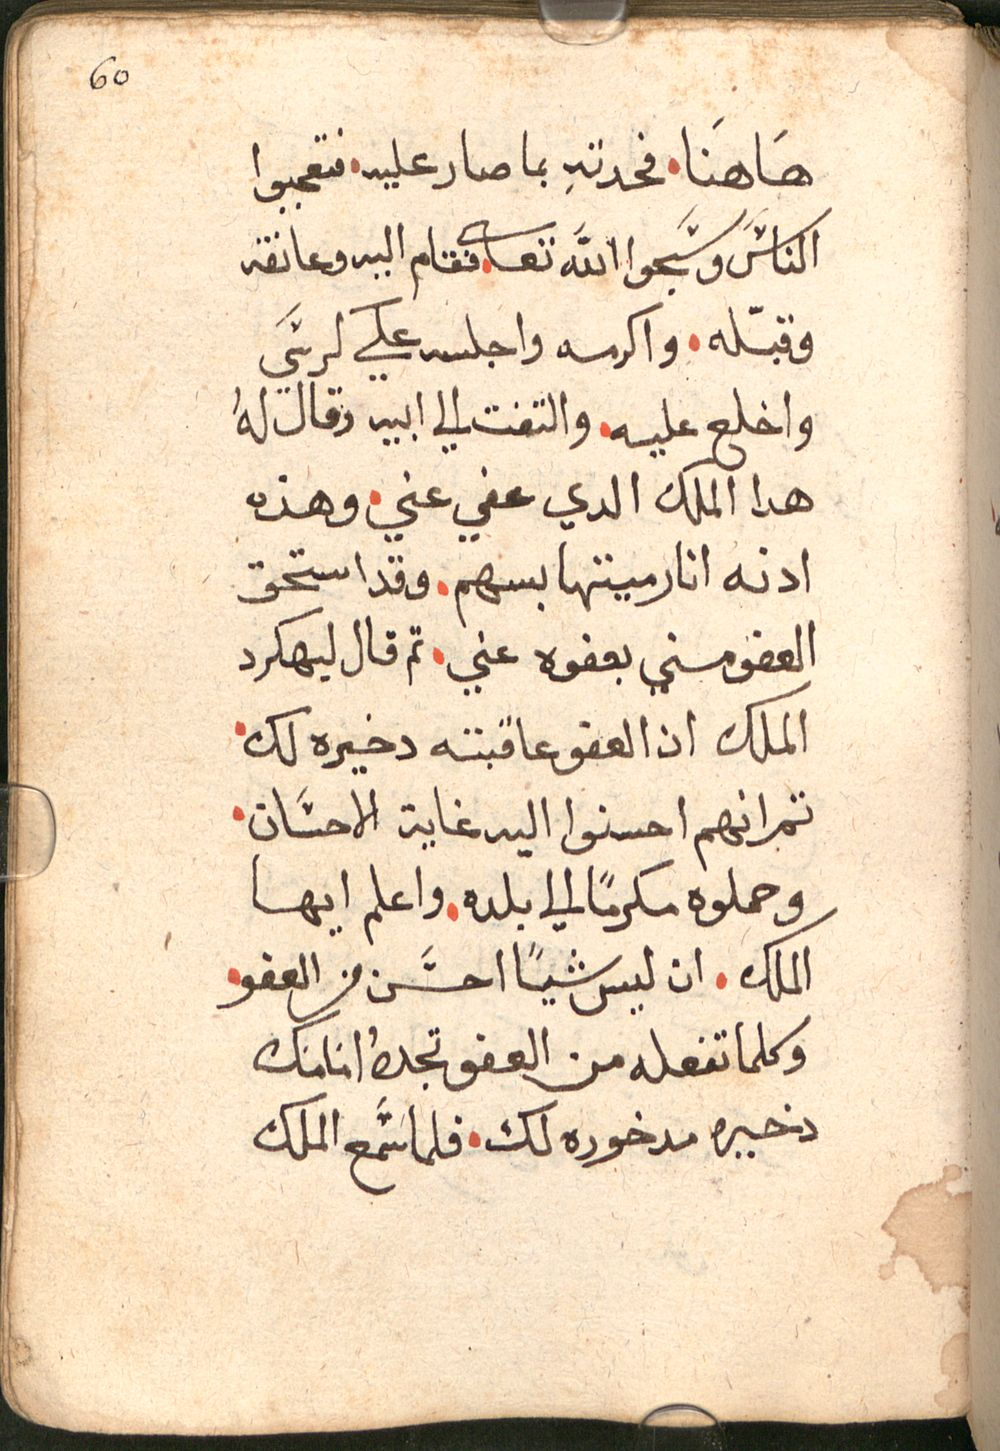 60
هَاهنَا. فحدتهِ بما صار عليه. فتعجبوا
الناسَ وسَبحوا اللَّه تعالى. فقام اليه وعانقه
وقبّله. واكرمه واجلسه علي كرسَي
واخلع عليه. والتفت الي ابيه وقال لهُ
هدا الملك الدي عفي عني. وهذه
ادنه انا رميتها بسهم. وقد استحق
العفو مني بعفوه عني. تم قال ليهكرد
الملك ان العفو عاقبته دخيره لك.
تم انهم احسنوا اليه غاية الاحسَان.
وحملوه مكرمًا الي بلده. واعلم ايها
الملك. ان ليس شيًا احسَّن من العفو.
وكلما تفعله من العفو تجدهُ امامك
دخيره مدخوره لك. فلما سَّمع الملك